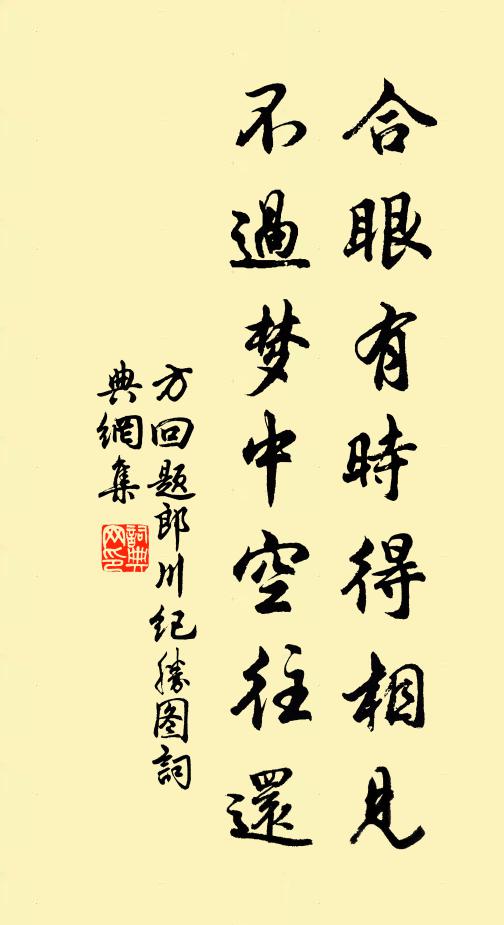 合眼有時得相見
不過梦中空往還
方回题郎川纪勝图詞
典網集
詞典
网印